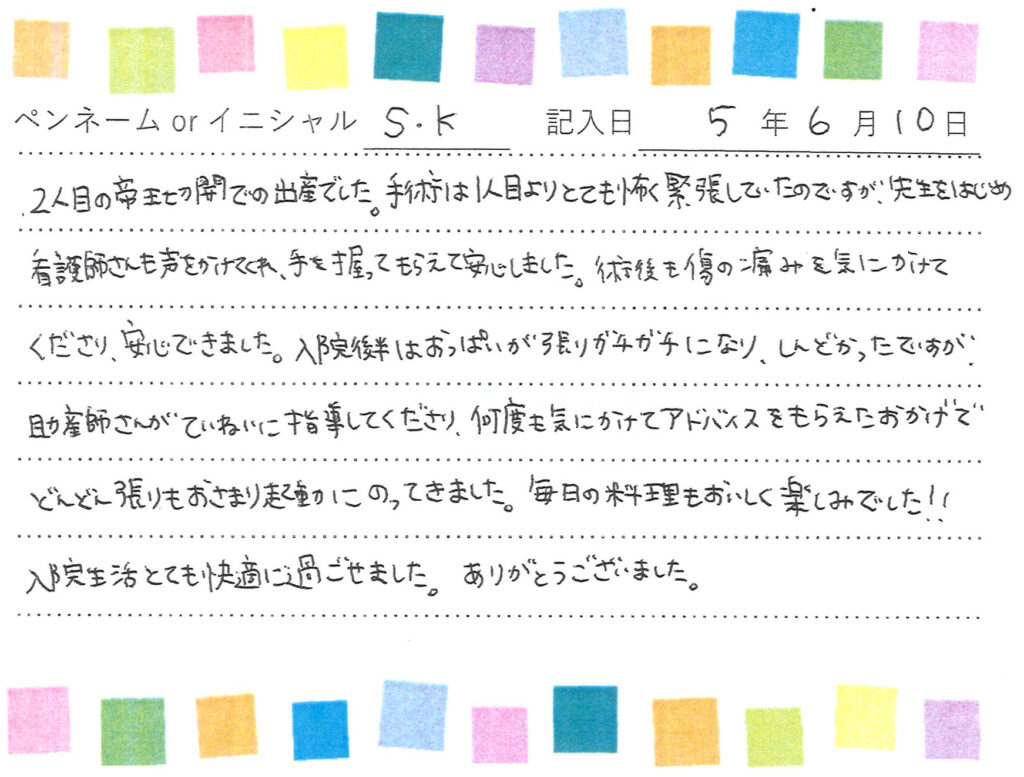 ペンネーム or イニシャル S.K 記入日 5年6月10日
2人目の帝王切開での出産でした。手術は1人目よりとても怖く緊張していたのですが、先生をはじめ
看護師さんも声をかけてくれ、手を握ってもらえて安心しました。術後も傷の痛みを気にかけて
くださり、安心できました。入院後半はおっぱいが張りガチガチになり、しんどかったですが、
助産師さんがていねいに指導してくださり、何度も気にかけてアドバイスをもらえたおかげで
どんどん張りもおさまり起動にのってきました。毎日の料理もおいしく楽しみでした!!
入院生活とても快適に過ごせました。ありがとうございました。